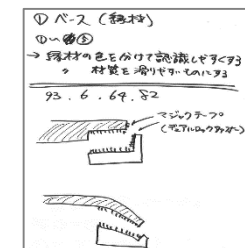 ① ベース (縁材)
→ 縁材の色を分けて認識しやすくする
〃 材質を滑りやすいものにする
93.6.64.82
マジックテープ
(デュアルロックファスナー)